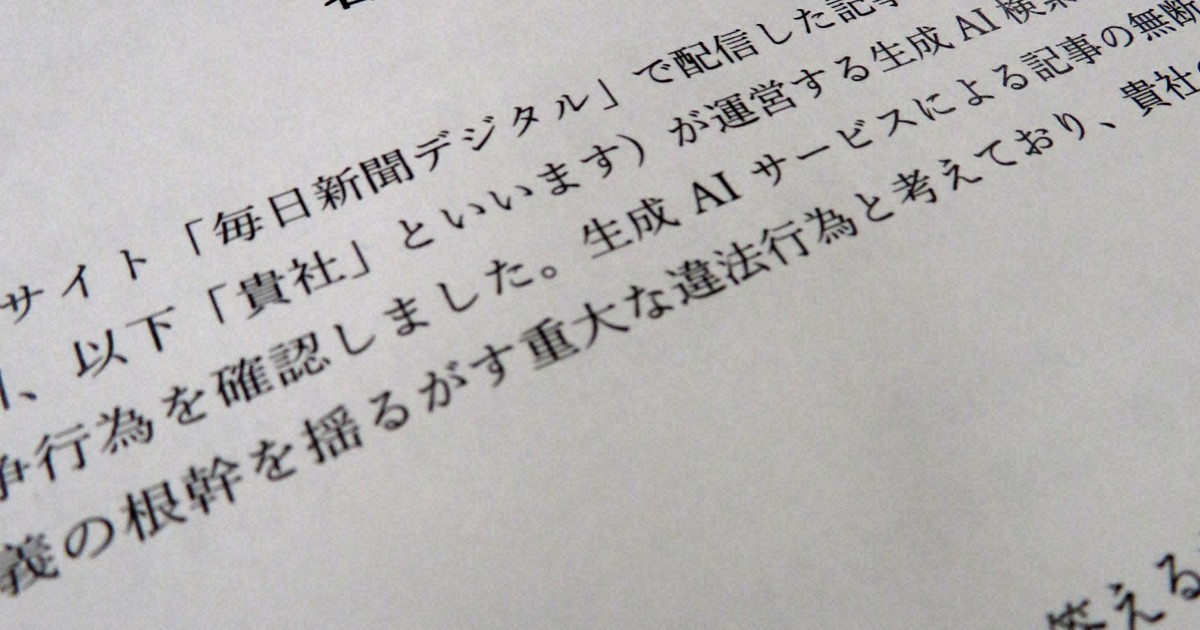 サイト「毎日新聞デジタル」で配信した記事
、以下「貴社」といいます）が運営する生成 AI 検索
争行為を確認しました。生成 AI サービスによる記事の無断
義の根幹を揺るがす重大な違法行為と考えており、貴社の
答える